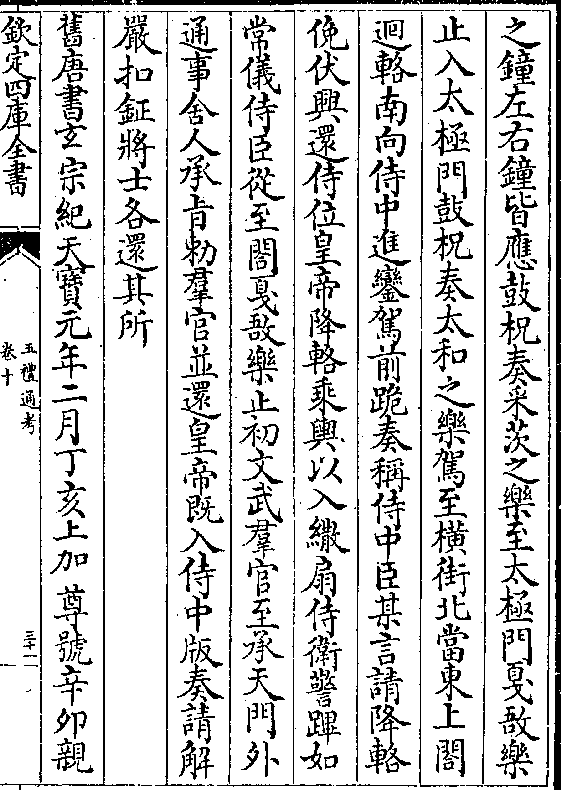 之鐘左右鐘皆應鼓柷奏采茨之樂至太極門戛敔樂
止入太極門鼓柷奏太和之樂駕至橫街北當東上閤
迴輅南向侍中進鑾駕前跪奏稱侍中臣某言請降輅
俛伏興還侍位皇帝降輅乘輿以入繖扇侍衛警蹕如
常儀侍臣從至閤戛敔樂止初文武羣官至承天門外
通事舍人承旨勅羣官並還皇帝既入侍中版奏請解
嚴扣鉦將士各還其所
舊唐書玄宗紀天寶元年二月丁亥上加 尊號辛卯親
欽定四庫全書
五禮通考
卷十
三十一